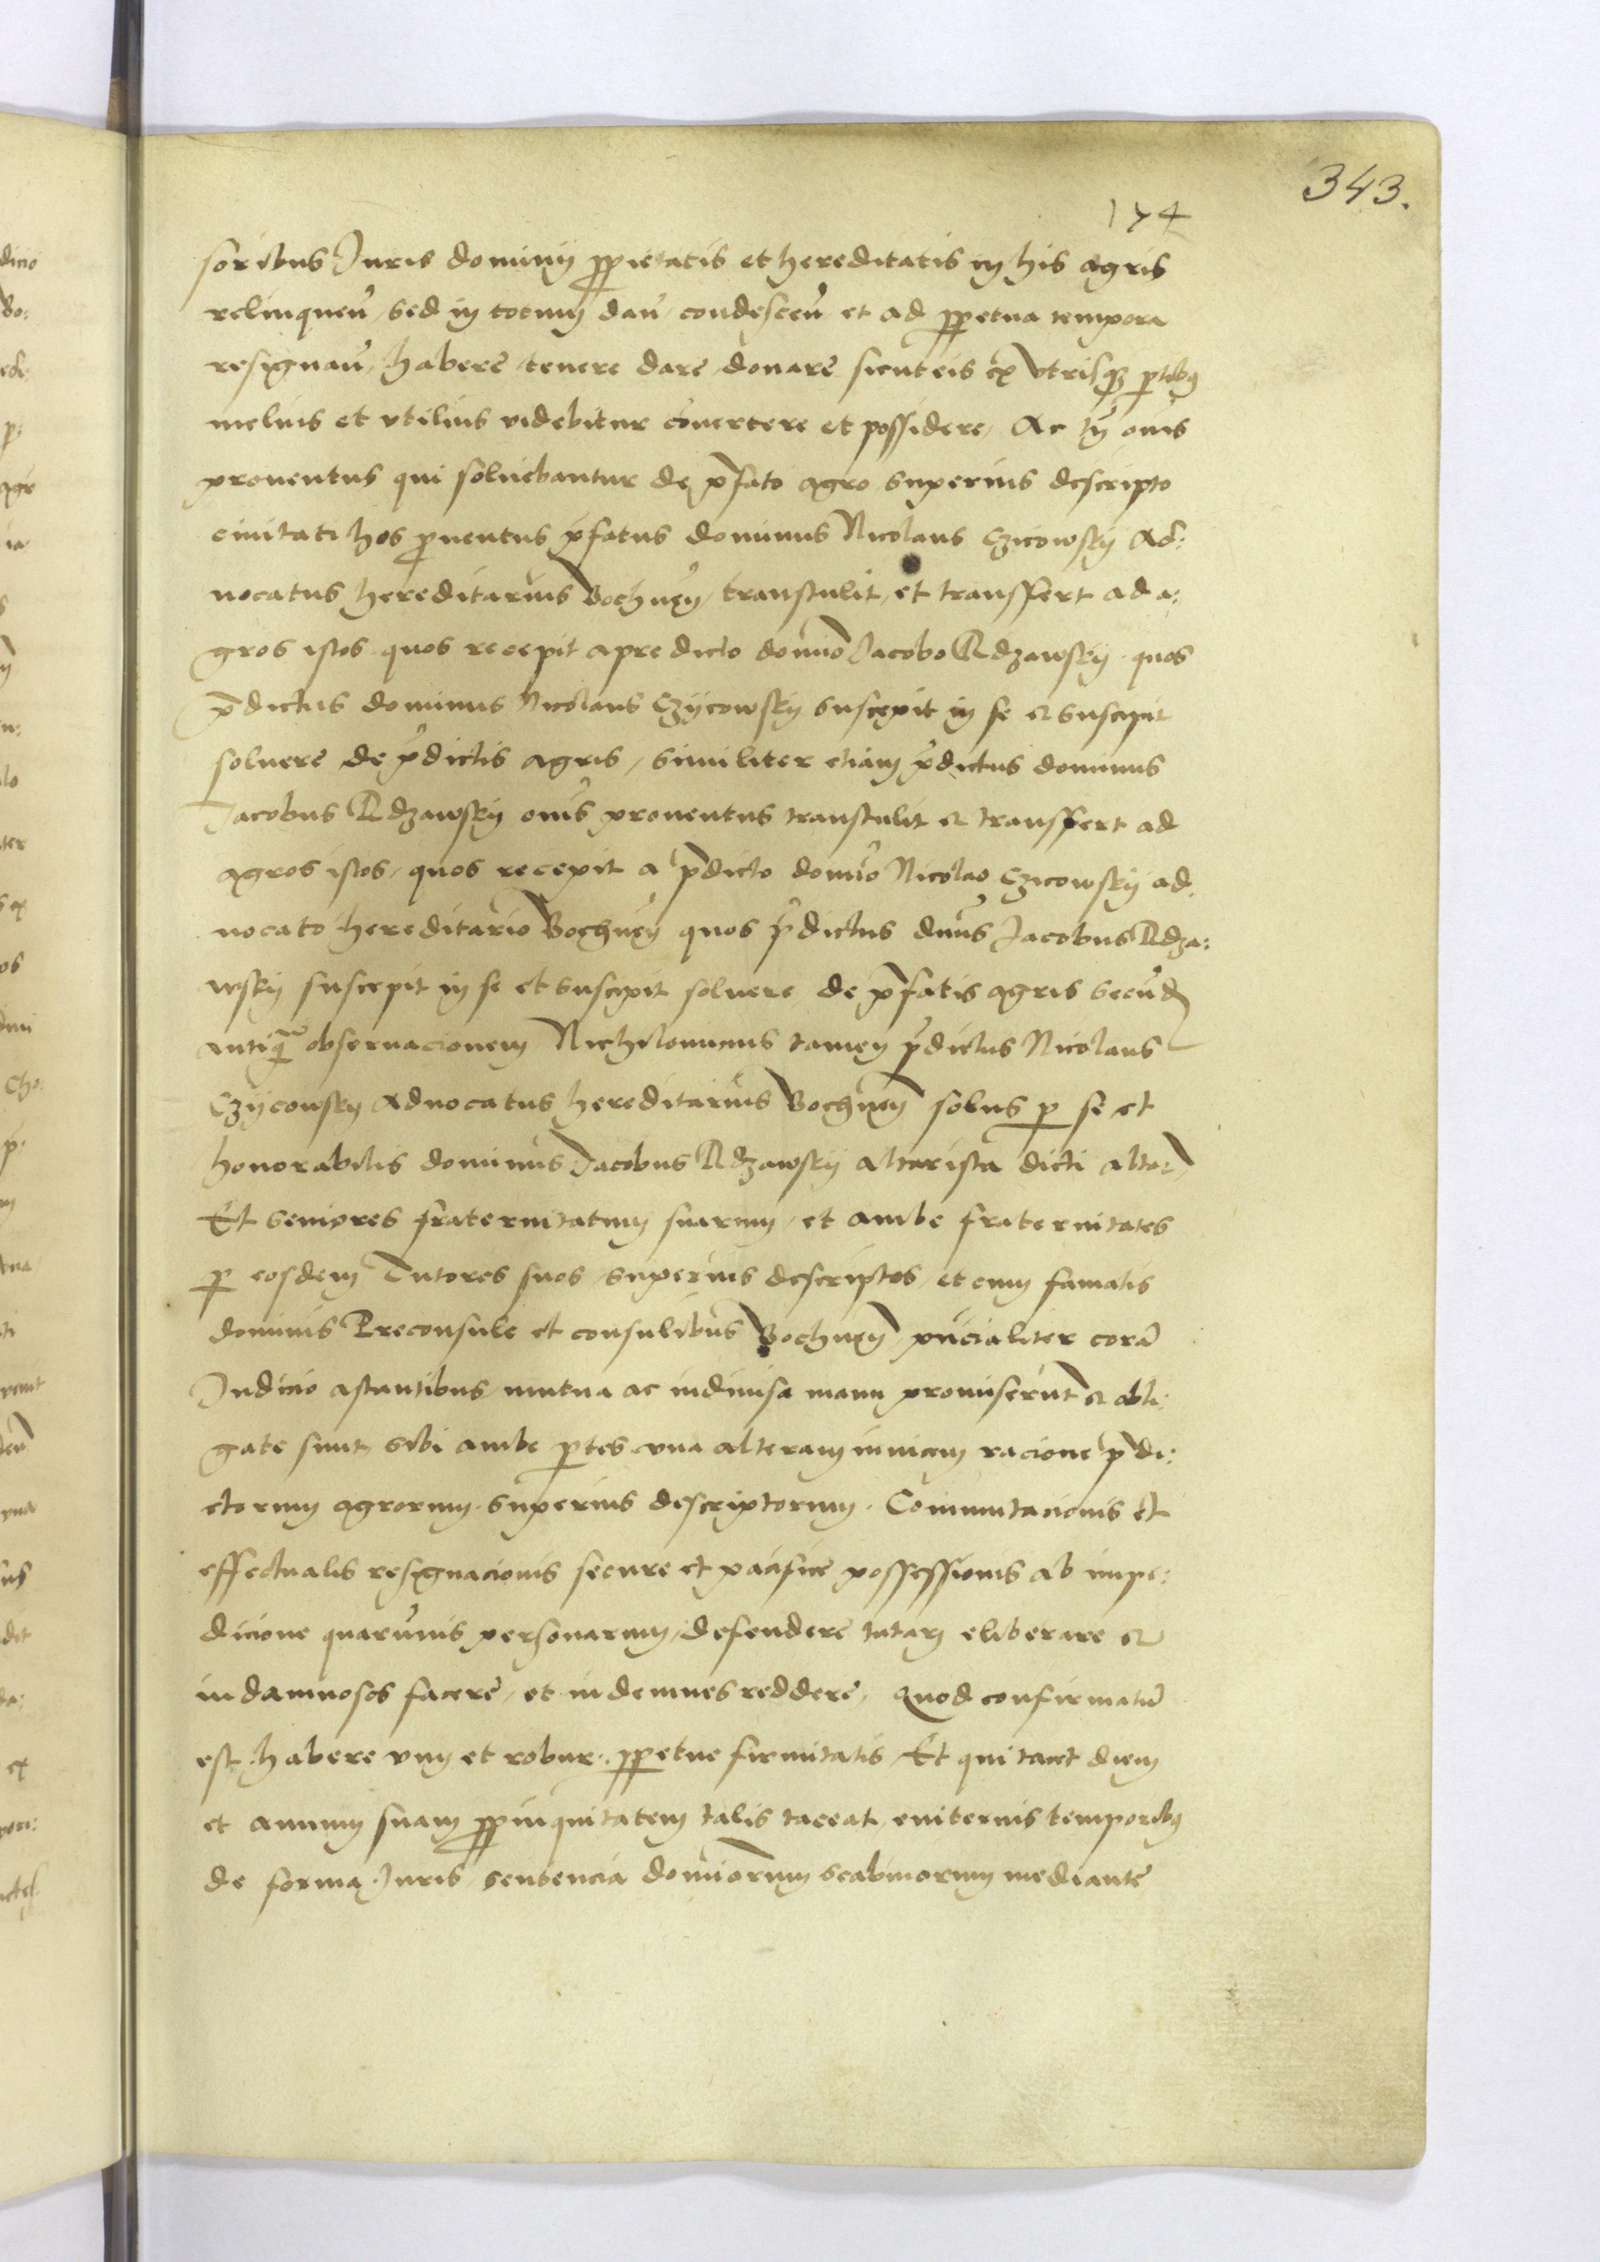 343.
174
soribus Juris dominij ppietatis et hereditatis in his agris
relinquen̄ sed in totum dan̄ condescen̄ et ad ppetua tempora
resignan̄, habere tenere dare donare sicut eis ex vtrisq₃ ptibꝫ
melius et vtilius videbitur cōuertere et possidere, Ac tn̄ om̄s
prouentus qui soluebantur de p̄fato agro superius descripto
ciuitati hos puentus p̄fatus dominus Nicolaus Czicowskÿ Ad:
uocatus hereditarius Bochnen̄, transtulit, et transffert ad a:
gros istos quos recepit apredicto domīo Jacobo Rdzawskÿ quos
p̄dictus dominus Nicolaus Czÿcowskÿ suscepit in se et suscipit
soluere de p̄dictis agris, similiter etiam p̄dictus dominus
Jacobus Rdzawskÿ om̄s prouentus transtulit et transffert ad
agros istos, quos recepit a p̄dicto domīo Nicolao Czicowskÿ ad:
uocato hereditario Bochnen̄ quos p̄dictus dn̄us Jacobus Rdza:
wskÿ suscepit in se et suscipit soluere de p̄fatis agris secūd
antiquā obseruacionem Nichilominus tamen p̄dictus Nicolaus
Czÿcowskÿ Aduocatus hereditarius Bochnen̄ solus p se et
honorabilis dominus Jacobus Rdzawskÿ altarista dicti altar̄
Et seniores fraternitatum suarum, et ambe fraternitates
p eosdem Tutores suos superius descriptos, et cum famatis
dominis Preconsule et consulibus Bochnen̄ pn̄cialiter corā
Judicio astantibus mutua ac indiuisa manu promiserūt et obli:
gate sunt sibi ambe ptes vna alteram inuicem racione p̄di:
ctorum agrorum superius descriptorum. Comutacionis et
effectualis resignacionis secure et pacifice possessionis ab impe:
dicione quarumuis personarum, defendere tutari eliberare et
indamnosos facere, et indemnes reddere, Quod confirmatū
est habere vim et robur ppetue firmitatis Et qui tacet diem
et annum suam ppinquitatem talis taceat euiternis temporibꝫ
de forma Juris sentencia domīorum scabinorum mediante